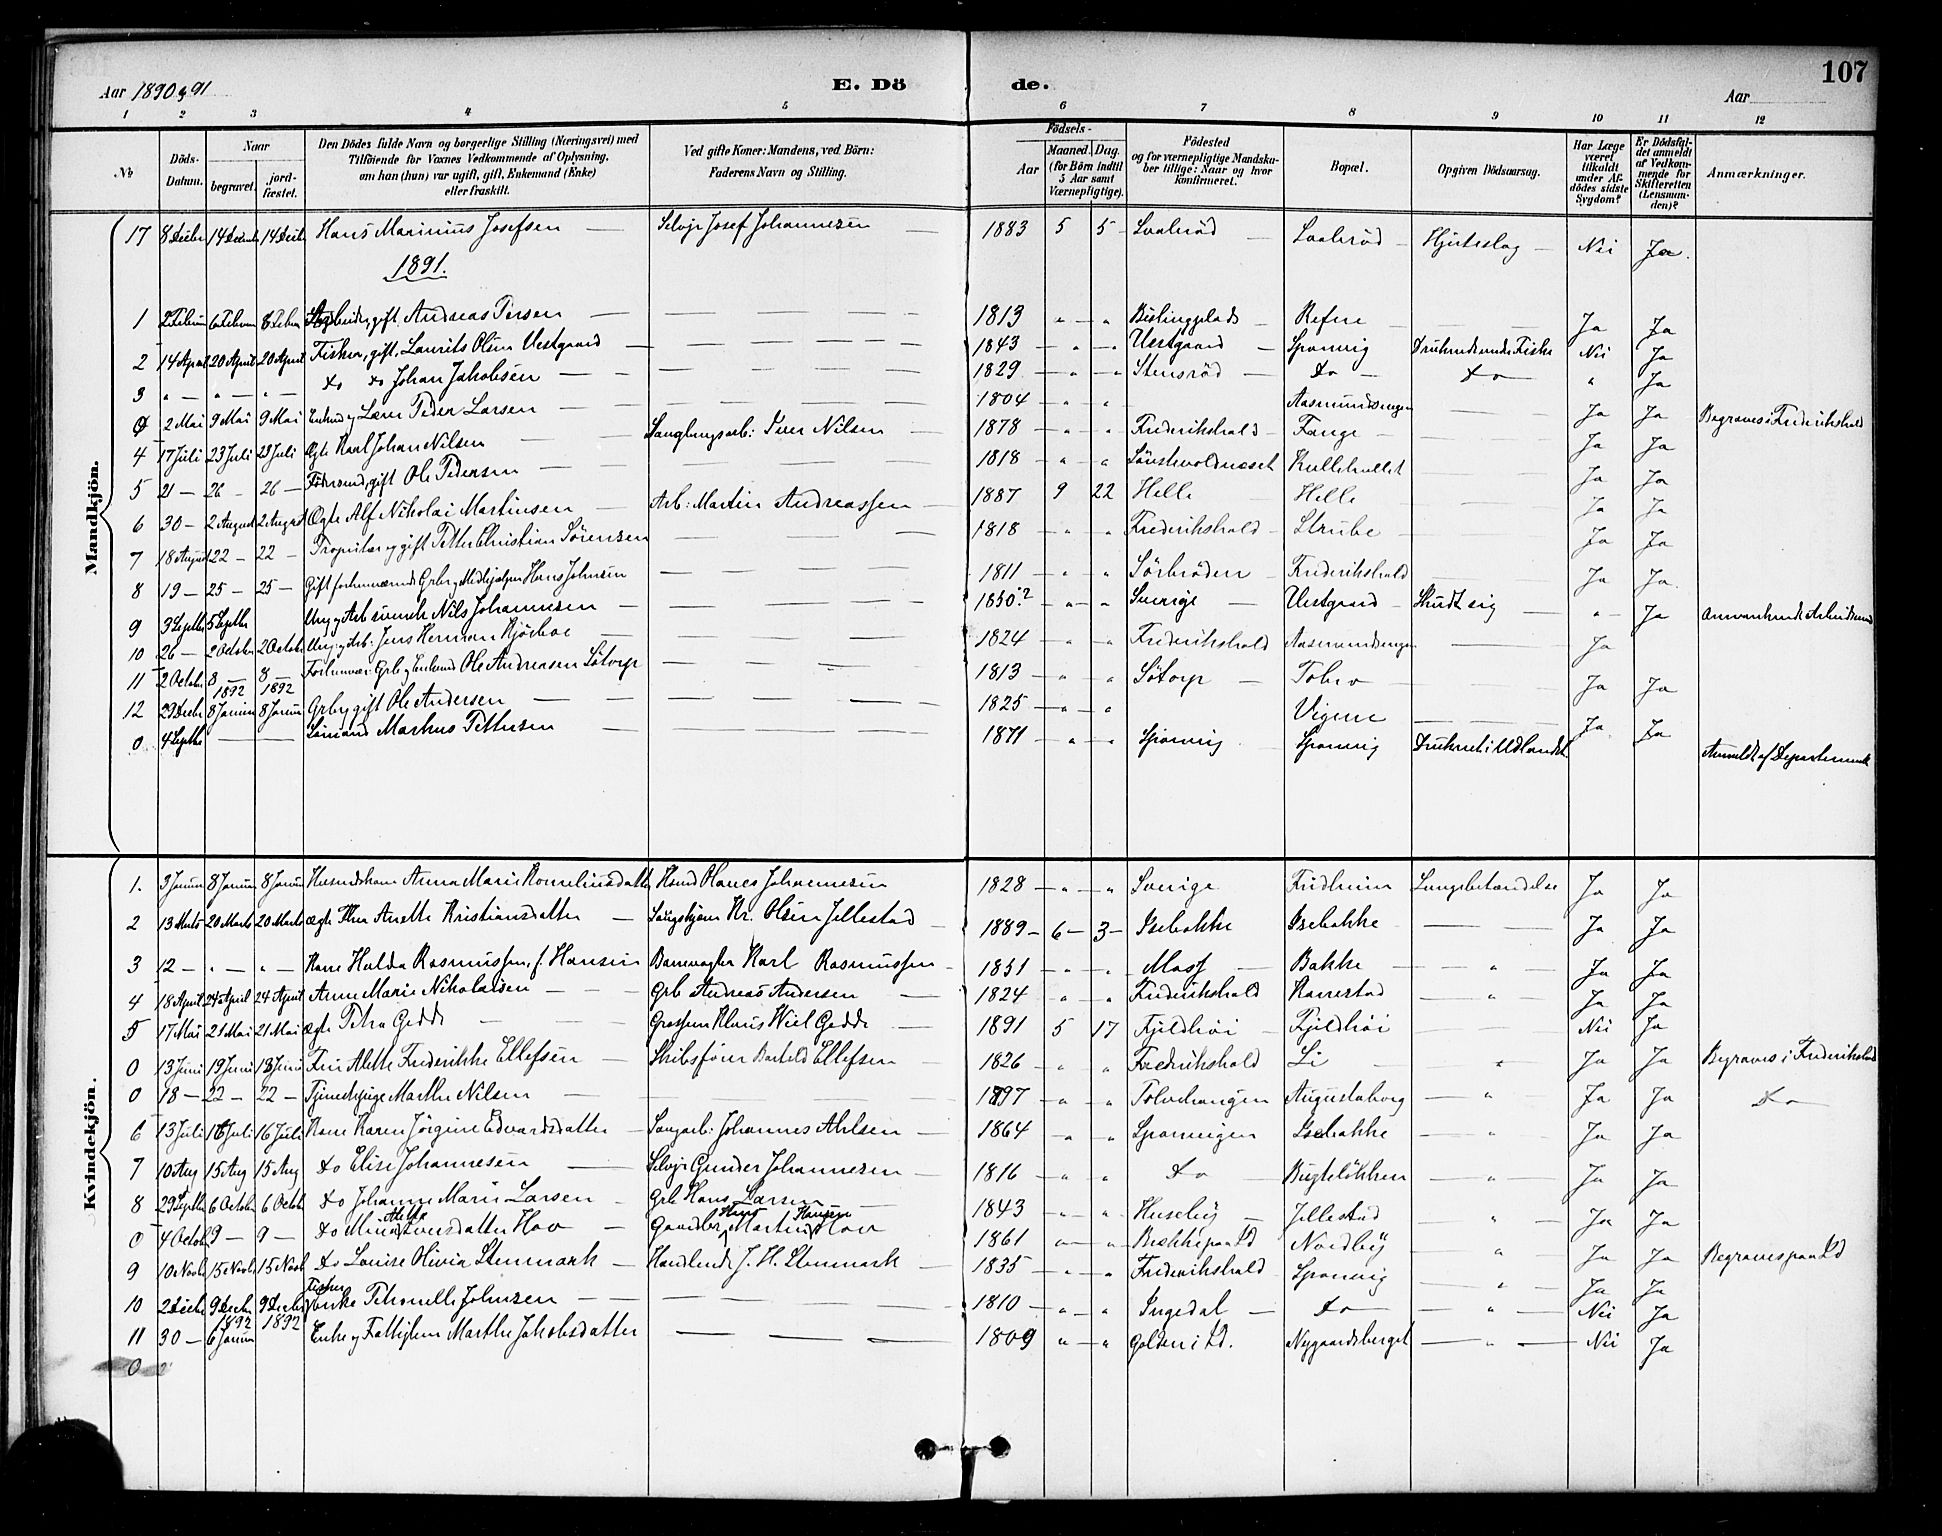 107
Aar 1890 & 91
E. Dö de.
Aar
1 2 3 4 5 6 7 8 9 10 11 12
No
Döds-Datum.
Naar
begravet.
jord-fæstet.
Den Dödes fulde Navn og borgerlige Stilling (Næringsvei) med Tilføiende for Voxnes Vedkommende af Oplysning, om han (hun) var ugift, gift, Enkemand (Enke) eller fraskilt.
Ved gifte Koner: Mandens, ved Börn: Faderens Navn og Stilling.
Födsels-
Aar
Maaned. Dag. (for Börn indtil 5 Aar samt Værnepligtige).
Födested og for værnepligtige Mandska-ber tillige: Naar og hvor konfirmeret.
Bopæl.
Opgiven Dödsaarsag.
Har Læge været tilkaldt under Af-dödes sidste Sygdom?
Er Dödsfal-det anmeldt af Vedkom-mende for Skifteretten (Lensman-den)?
Anmærkninger.
Mandkjön.
17 8 Decbr 14 Decbr 14 Decbr Hans Marinius Josefsen — Selvejr Josef Johannesen — 1883 5 5 Hjerteslag — Nei Ja.
1891.
1 gift, Andreas — 1813 " — " Refne Ja Ja
2 14 April 20 April 20 April Fisker, gift, Laurits Olsen Vestgaard — 1843 — " — " Vestgaard — Sponvig Nei Ja
3 " — " — " — do do Johan Jakobsen — 1829 — " — " Stensröd — do — do — " Ja
0 2 Mai 9 Mai 9 Mai Peder Larsen — 1804 — " " Aasmundsengen Ja Ja Begraves i Frederikshald
4 17 Juli 23 Juli 23 Juli Ægte Karl Johan Nilsen — Iver Nilsen — 1878 — " " Frederikshald — Fange — Ja Ja
5 21 — 26 — 26 — gift Ole Pedersen — 1818 — " " Ja Ja
6 30 — 2 August 2 August Ægte Alf Nikolai Martinsen — Arb: Martin Andreassen — 1887 9 22 Helle Helle — Ja Ja
7 18 August 22 — 22 — Proprietær og gift Petter Christian Sörensen — 1818 — " " Frederikshald — Strube — Ja Ja
8 19 — 25 — 25 — Gift forhenværende Grbr og Medhjælper Hans Johnsen — 1811 — " " Sörbröden — Frederikshald Ja Ja.
9 3 Septbr 5 Septbr Ung. Nils Johannesen — 1850.? — " — " Sverige — Vestgaard — Skudt sig — " — Ja
10 26 — 2 Octobr 2 Octobr Ung. Arb: Jens Herman — 1824 — " " Frederikshald Aasmundsengen — Ja
11 2 Octobr 8 — 8 — Forhenvær. Grbr og Enkemd Ole Andreasen Sötorp — 1813 — " " Sötorp — Tobro — Ja Ja
1892 1892
12 29 Decbr 8 Januar 8 Januar Grbr og gift Ole Andersen — 1825 — " — " Vigene — Ja Ja
0 4 Septbr — — Sömand Markus Pettersen — 1871 — " — " Sponvig Sponvig Druknet i Udlandet Anmeldt af Departement
Kvindekjön.
1. 3 Januar 8 Januar 8 Januar Anna Marie Kornelinsdatter Johannesen 1828 — " — " Sverige Lungebetændelse Ja Ja
2 13 Marts 20 Marts 20 Marts Ægte Anette Kristiansdatter — Kr. Olsen Jellestad — 1889 — 6 — 3 — Isebakke Isebakke — — Ja Ja
3 12 — " — " — Kone Hulda Rasmussen, f. Hansen Banevogter Karl Rasmussen — 1851 — " — " Moss — Bakke — " — Ja Ja
4 18 April 24 April 24 April Anne Marie Nikolaisen — — Grbr Andreas Andersen — 1824 — " " Frederikshald Karrestad — " — Ja Ja
5 17 Mai 21 Mai 21 Mai Ægte Petra Gedde — Grosserer Klaus Wiel Gedde — 1891 5 17 Fjeldhöi — Fjeldhöi — Nei Ja
0 13 Juni 19 Juni 19 Juni Alette Frederikke Ellefsen — Skibsförer Bartold Ellefsen — 1826 — " " Frederikshald Li — " Ja Ja Begraves i Frederikshald
0 18 — 22 — 22 — Tjenestepige Marthe Nilsen — " " Augustaborg — " Ja Ja do —
6 13 Juli 16 Juli 16 Juli Kone Karen Jörgine Edvardsdatter — Saugarb: Johannes Ahlsen — 1864 — " " Sponvigen — Isebakke — " Ja Ja
7 10 Aug 15 Aug 15 Aug do Elise Johannesen — Selvejr Gunder Johannesen 1816 " " do — Bugtelökken — " Ja Ja
8 29 Septbr 6 Octobr 6 Octobr do Johanne Marie Larsen — Grbr Hans Larsen — 1843 " " Huseby Jellestad " — Ja Ja
0 4 Octobr 9 — 9 — do Mina Iversdatter Hov — Gaardbr Hans Martin Hansen Hov 1861 " — " Nordby " Ja Ja
9 10 Novbr 15 Novbr 15 Novbr do Louise Olivia Stenmark — Handlende J. H. Stenmark — 1835 — " " Frederikshald Sponvig " Ja Ja
10 2 Decbr 9 Decbr 9 Decbr Fisker Enke Petronelle Johnsen — 1810 — " " Ingedal — do — " — Nei Ja
1892 1892
11 30 — 6 Januar Enke og Fattiglem Marthe Jakobsdatter — 1809 " — " Nygaardsberget — " — Nei Ja
0